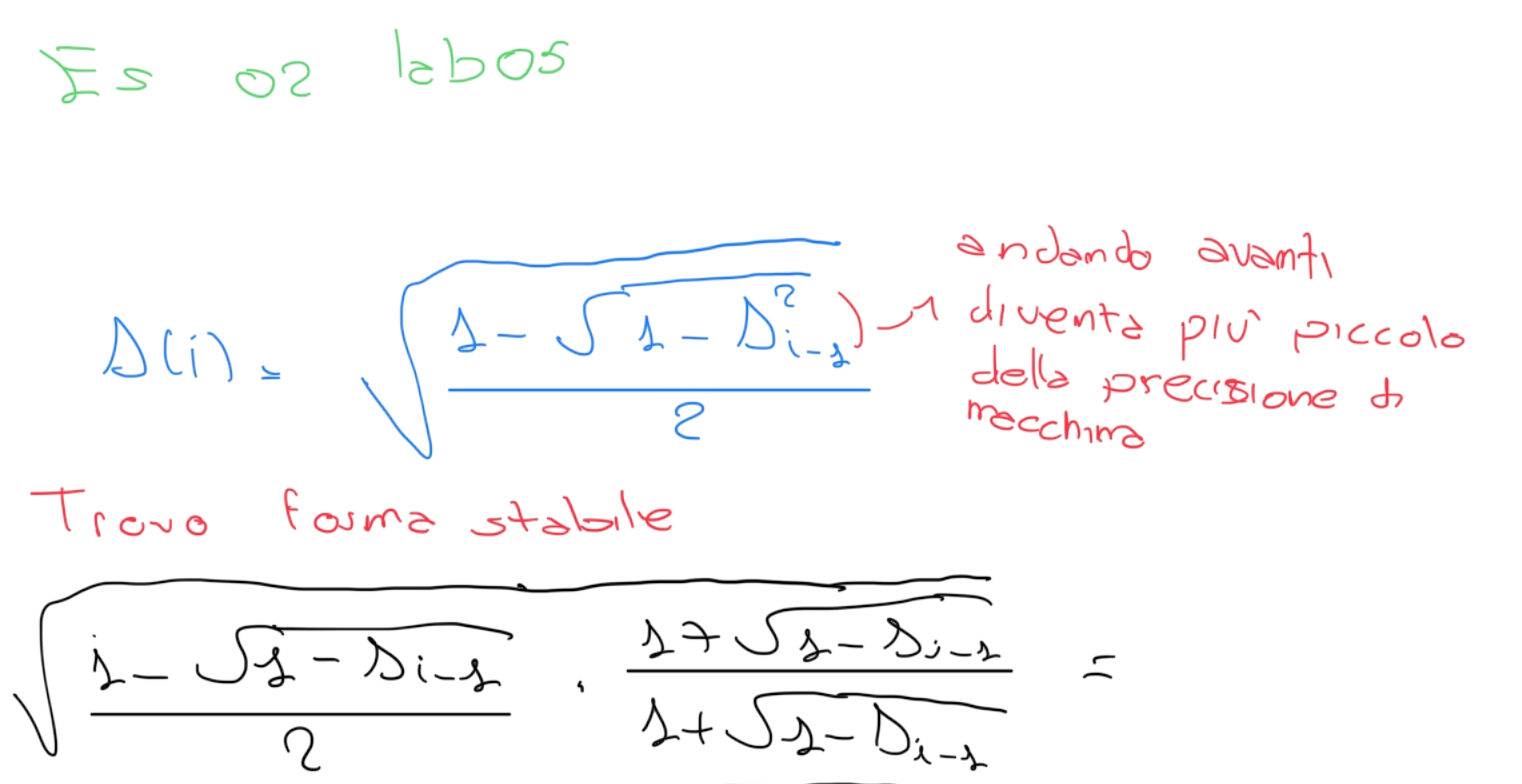 Es 02 lab05
s(i) = √((1 - √(1 - s²_{i-1})) / 2)
andando avanti
diventa più piccolo
della precisione di
macchina
Trovo forma stabile
√((1 - √(1 - s_{i-1})) / 2 · (1 + √(1 - s_{i-1})) / (1 + √(1 - s_{i-1}))) =